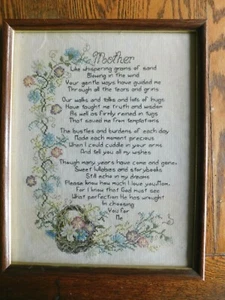 Mother
Like whispering grains of sand
Blowing in the wind
Your gentle ways have guided me
Through all the tears and grins.
Our walks and talks and lots of hugs
Have taught me truth and wisdom
As well as firmly reined in tugs
That saved me from temptations.
The bustles and burdens of each day
Made each moment precious
When I could cuddle in your arms
And tell you all my wishes
Though many years have come and gone,
Sweet lullabies and storybooks
Still echo in my dreams
Please know how much I love you, Mom,
For I know that God must see
What perfection He has wrought
In choosing
You for
Me